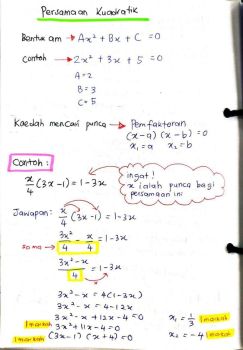 Persamaan Kuadratik
Bentuk am → Ax² + Bx + C = 0
Contoh → 2x² + 3x + 5 = 0
A = 2
B = 3
C = 5
Kaedah mencari punca → Pemfaktoran
(x-a)(x-b) = 0
x₁ = a x₂ = b
Contoh:
x/4 (3x-1) = 1-3x
ingat!
x ialah punca bagi
persamaan ini
Jawapan: x/4 (3x-1) = 1-3x
sama 3x²/4 - x/4 = 1-3x
3x²-x/4 = 1-3x
3x²-x = 4(1-3x)
3x²-x = 4-12x
3x²-x+12x-4 = 0
1 markah 3x²+11x-4 = 0
1 markah (3x-1)(x+4) = 0
x₁ = 1/3 1 markah
x₂ = -4 1 markah